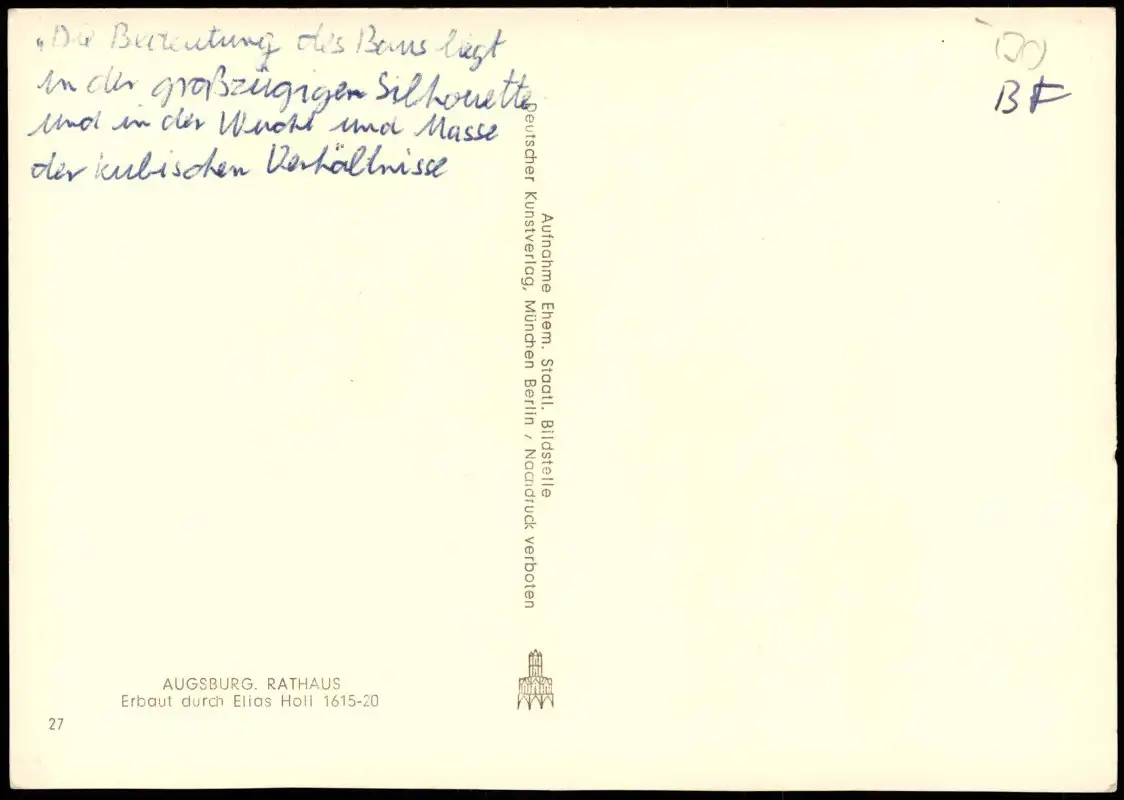 „Die Bedeutung des Baus liegt
in der großzügigen Silhouette
und in der Wucht und Masse
der kubischen Verhältnisse
BF
Aufnahme Ehem. Staatl. Bildstelle
Deutscher Kunstverlag, München Berlin / Nachdruck verboten
AUGSBURG. RATHAUS
Erbaut durch Elias Holl 1615-20
27